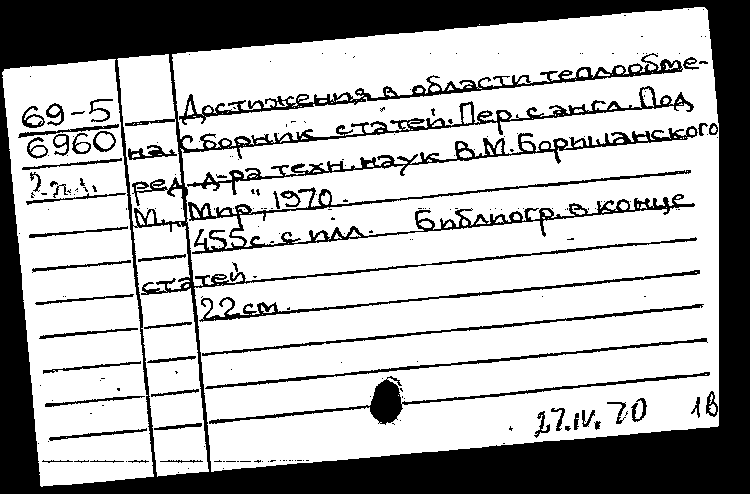 69-5
6960
Достижения в области теплообме-
на. Сборник статей. Пер. с англ. Под
ред. д-ра техн. наук В.М. Боришанского
М., „Мир", 1970.
455с. с илл. Библиогр. в конце
статей.
22см.
27.IV.70 1В